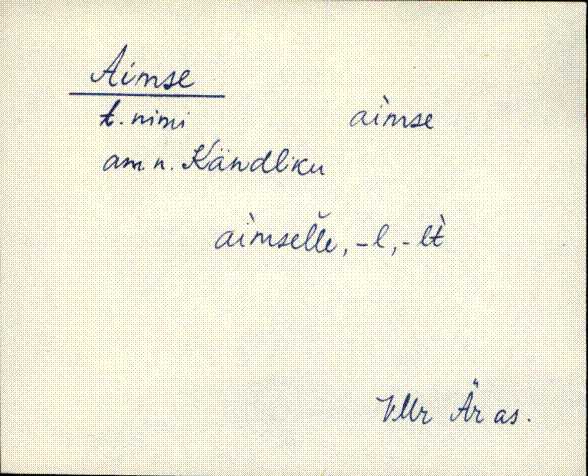 Aimse
t. nimi aìmse
am. n. Kändliku
aìmselle, -l, -lt
VMr Är as.